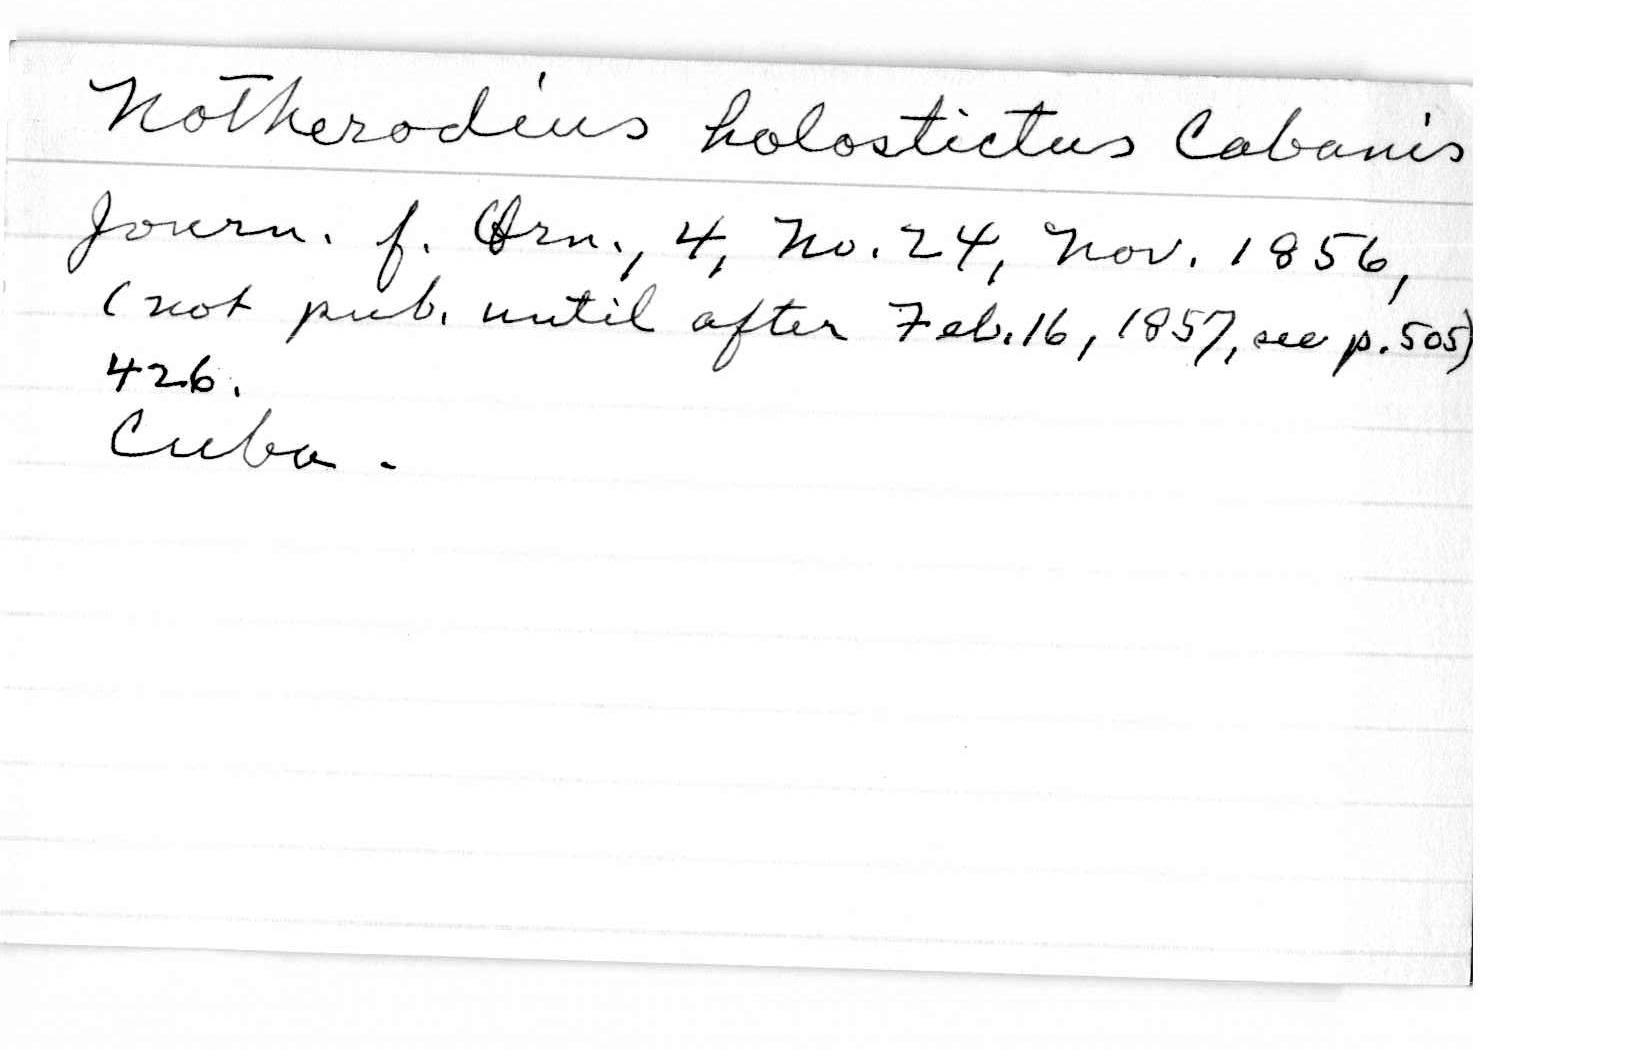 Notherodius holostictus Cabanis
Journ. f. Orn., 4, No. 24, Nov. 1856,
(not pub. until after Feb. 16, 1857, see p. 505)
426.
Cuba.